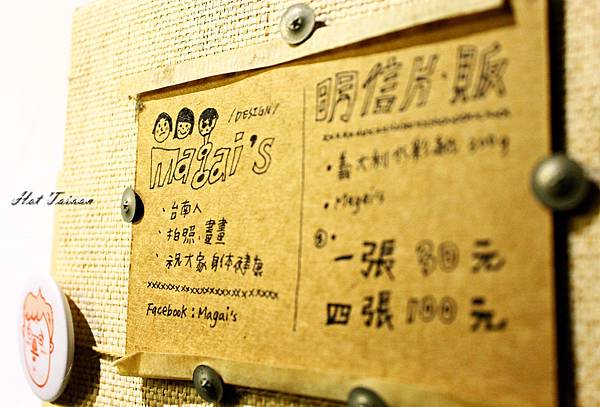 /DESIGN/
magai's
・台南人
・拍照.畫畫
・祝大家身体健康
xxxxxxxxxxxxxxxxxxxxx
Facebook : Magai's
明信片・販
・義大利水彩紙 300g
・Magai's
一張 30 元
四張 100 元
Hot Taiwan